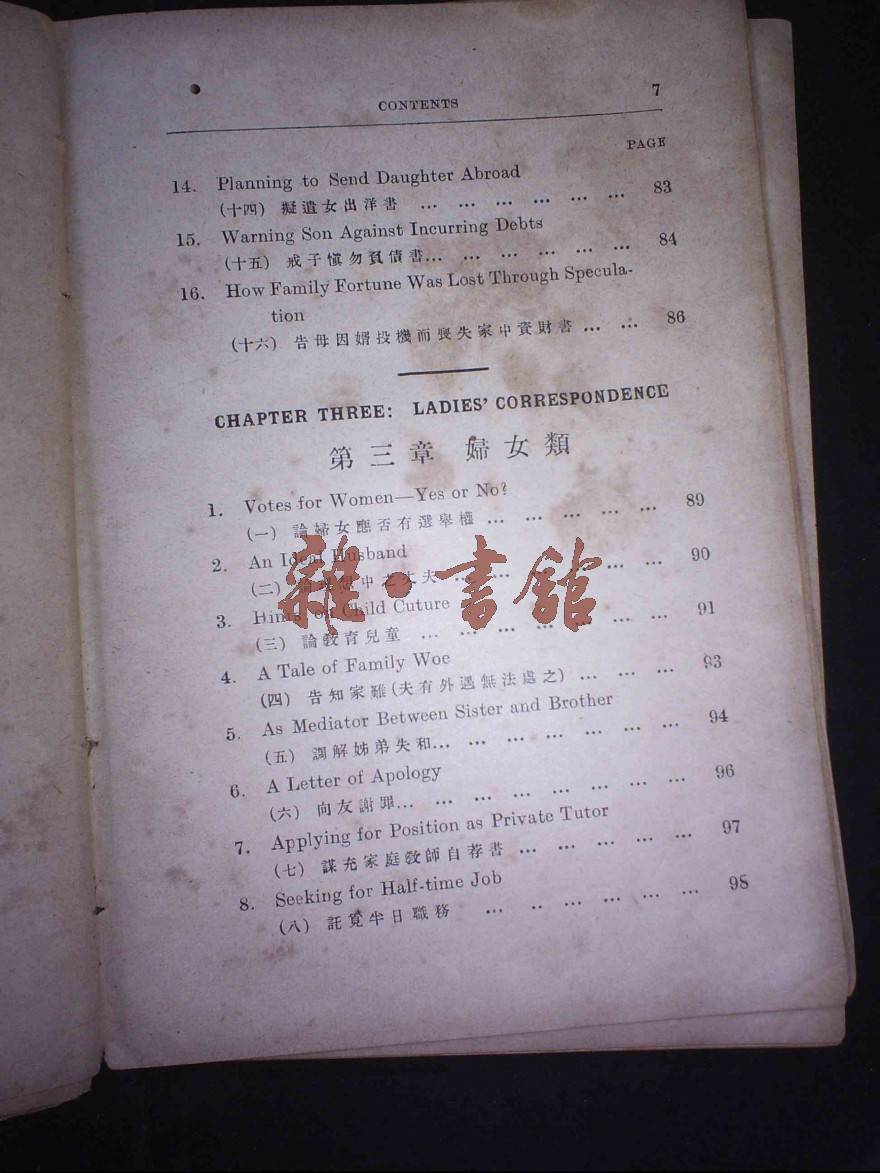 CONTENTS 7
PAGE
14. Planning to Send Daughter Abroad
(十四) 擬遣女出洋書 … … … … … … 83
15. Warning Son Against Incurring Debts
(十五) 戒子愼勿負債書… … … … … … 84
16. How Family Fortune Was Lost Through Specula-
tion
(十六) 告母因婿投機而喪失家中資財書 … … 86
CHAPTER THREE: LADIES' CORRESPONDENCE
第三章 婦女類
1. Votes for Women—Yes or No?
(一) 論婦女應否有選舉權 … … … … … 89
2. An Ideal Husband
(二) 論理想中之丈夫 … … … … … … 90
3. Hints on Child Cuture
(三) 論敎育兒童 … … … … … … … 91
4. A Tale of Family Woe
(四) 告知家難(夫有外遇無法處之) … … … 93
5. As Mediator Between Sister and Brother
(五) 調解姊弟失和… … … … … … … 94
6. A Letter of Apology
(六) 向友謝罪… … … … … … … … 96
7. Applying for Position as Private Tutor
(七) 謀充家庭敎師自荐書 … … … … … 97
8. Seeking for Half-time Job
(八) 託覓半日職務 … ‥ … … … … 98
雜·書館